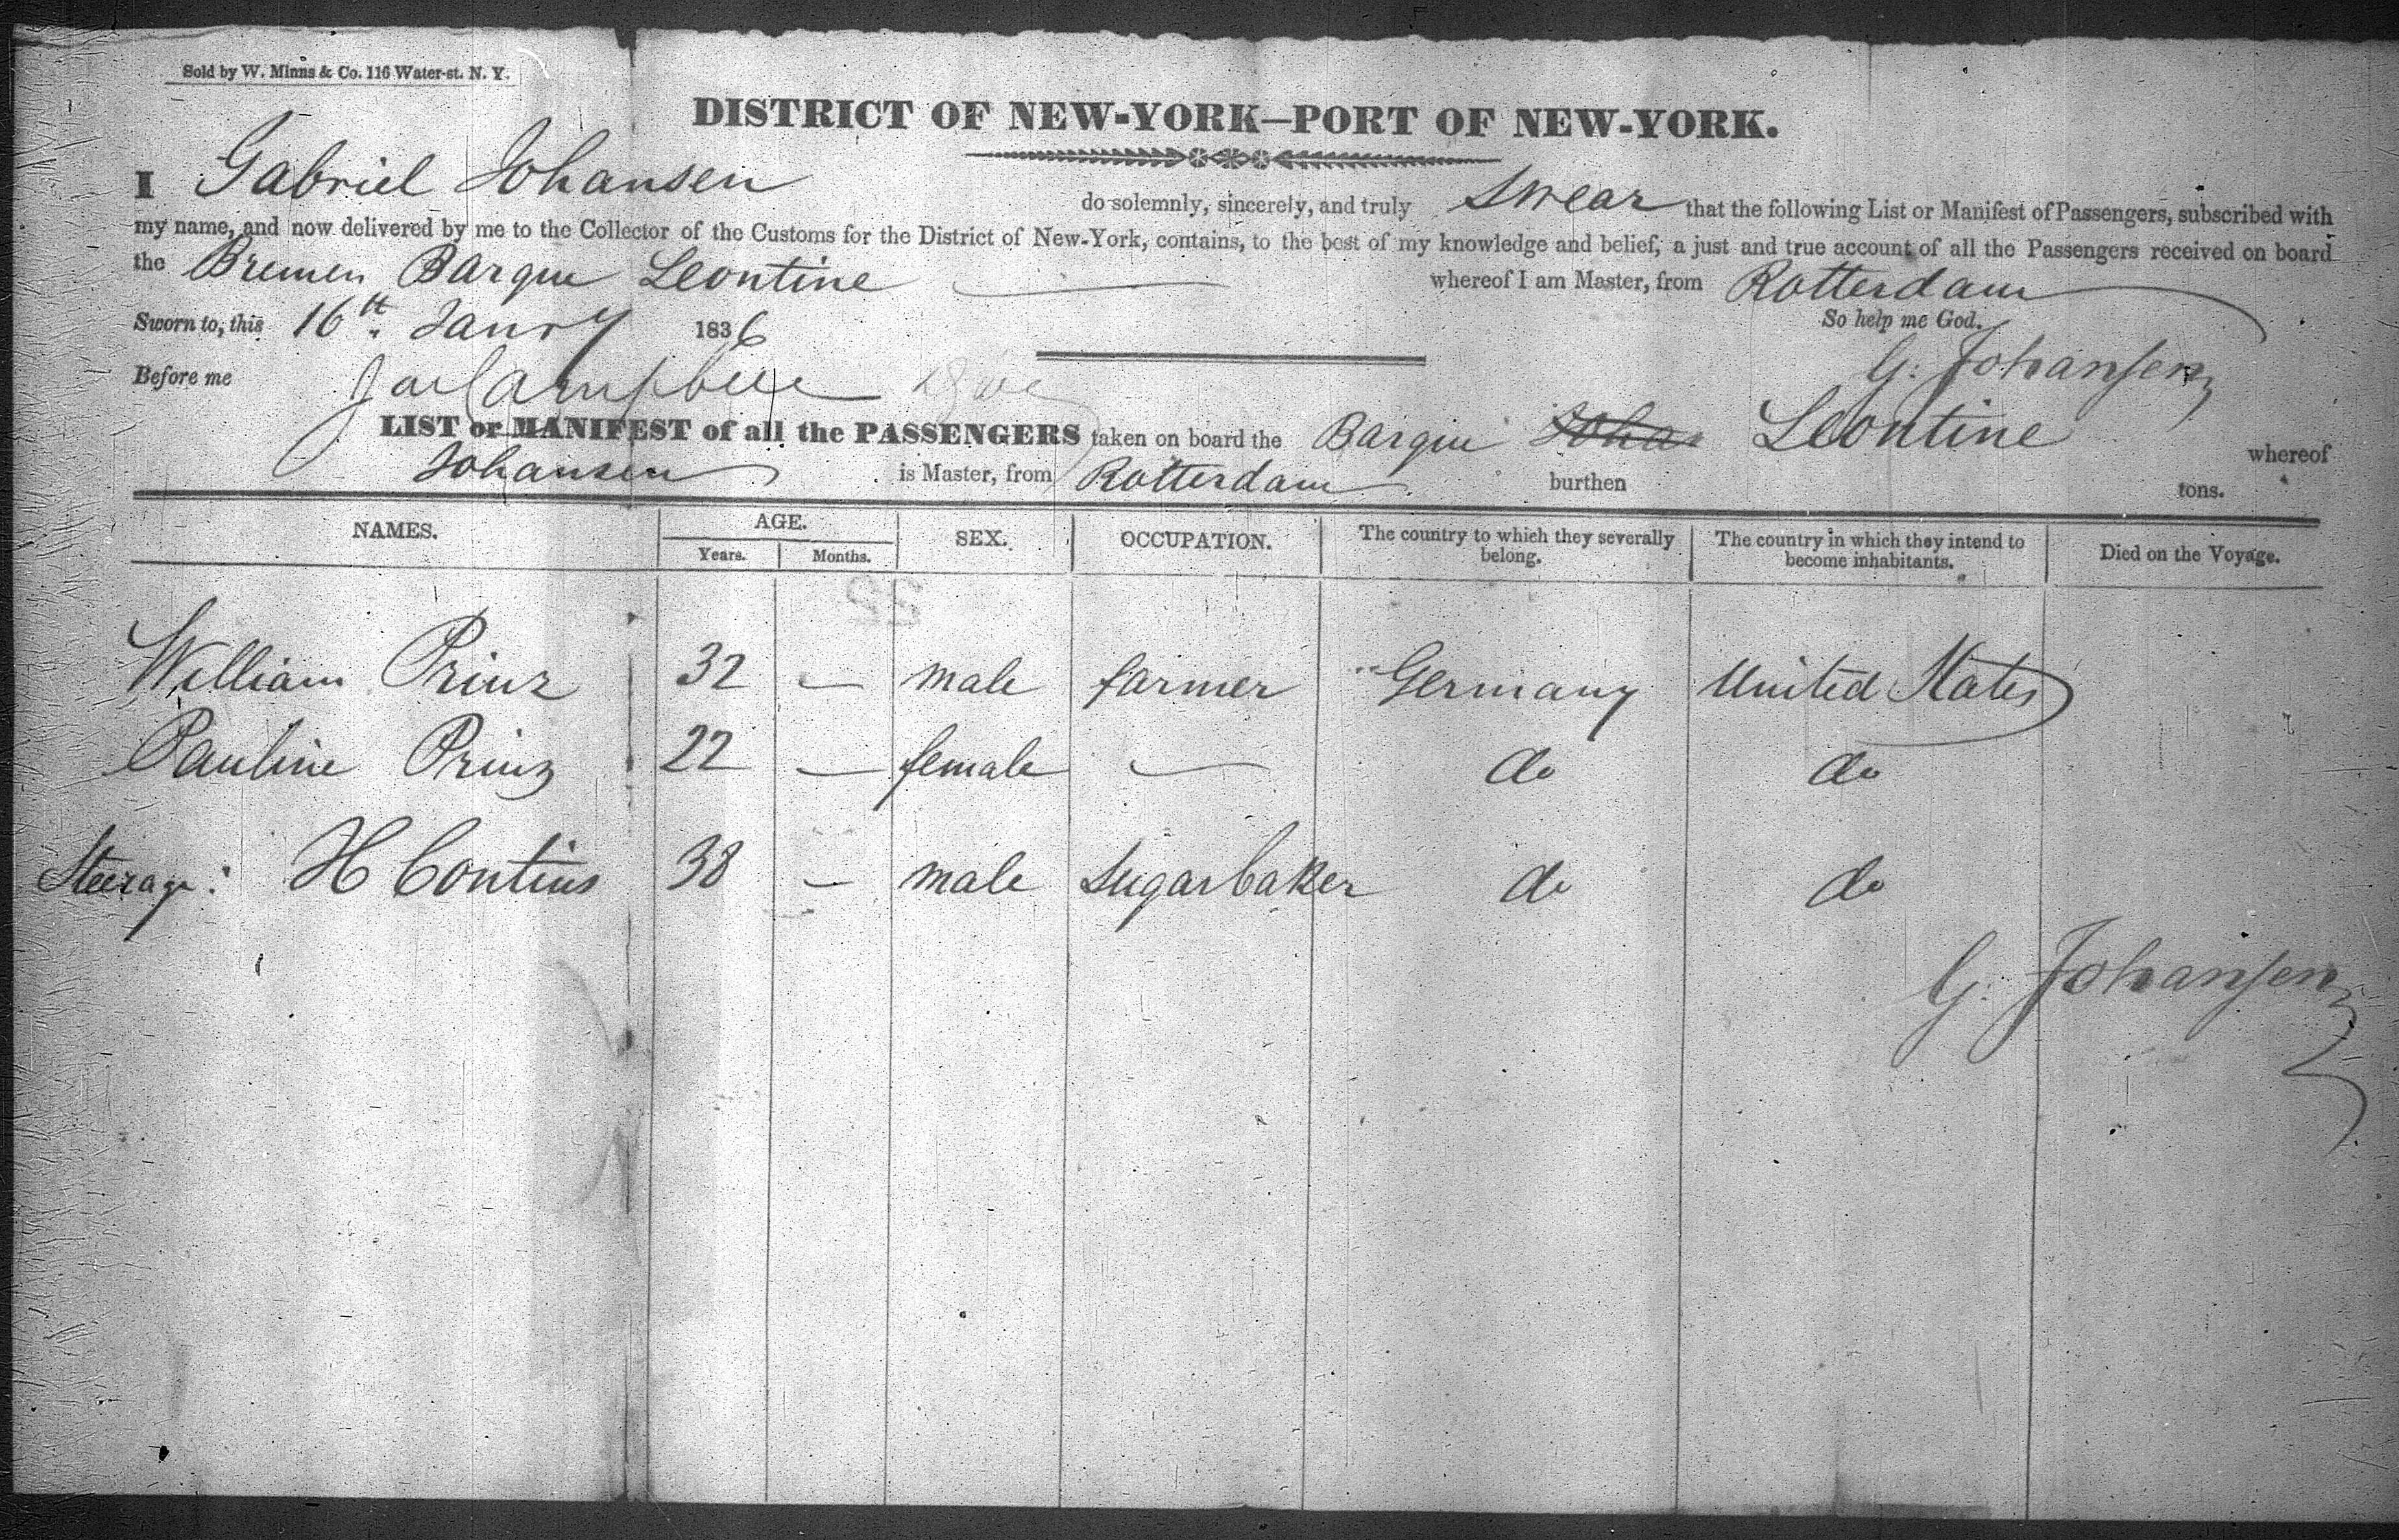 Sold by W. Minns & Co. 116 Water-st. N. Y.
DISTRICT OF NEW-YORK—PORT OF NEW-YORK.
I Gabriel Johansen do solemnly, sincerely, and truly swear that the following List or Manifest of Passengers, subscribed with
my name, and now delivered by me to the Collector of the Customs for the District of New-York, contains, to the best of my knowledge and belief, a just and true account of all the Passengers received on board
the Bremen Barque Leontine whereof I am Master, from Rotterdam
Sworn to, this 16th Janry 1836 So help me God.
Before me Campbell G. Johansen
LIST or MANIFEST of all the PASSENGERS taken on board the Barque Leontine whereof
Johansen is Master, from Rotterdam burthen tons.
NAMES. AGE. Years. Months. SEX. OCCUPATION. The country to which they severally belong. The country in which they intend to become inhabitants. Died on the Voyage.
William Prinz 32 — male farmer Germany United States
Pauline Prinz 22 — female — do do
Steerage: H Contius 38 — male sugarbaker do do
G. Johansen